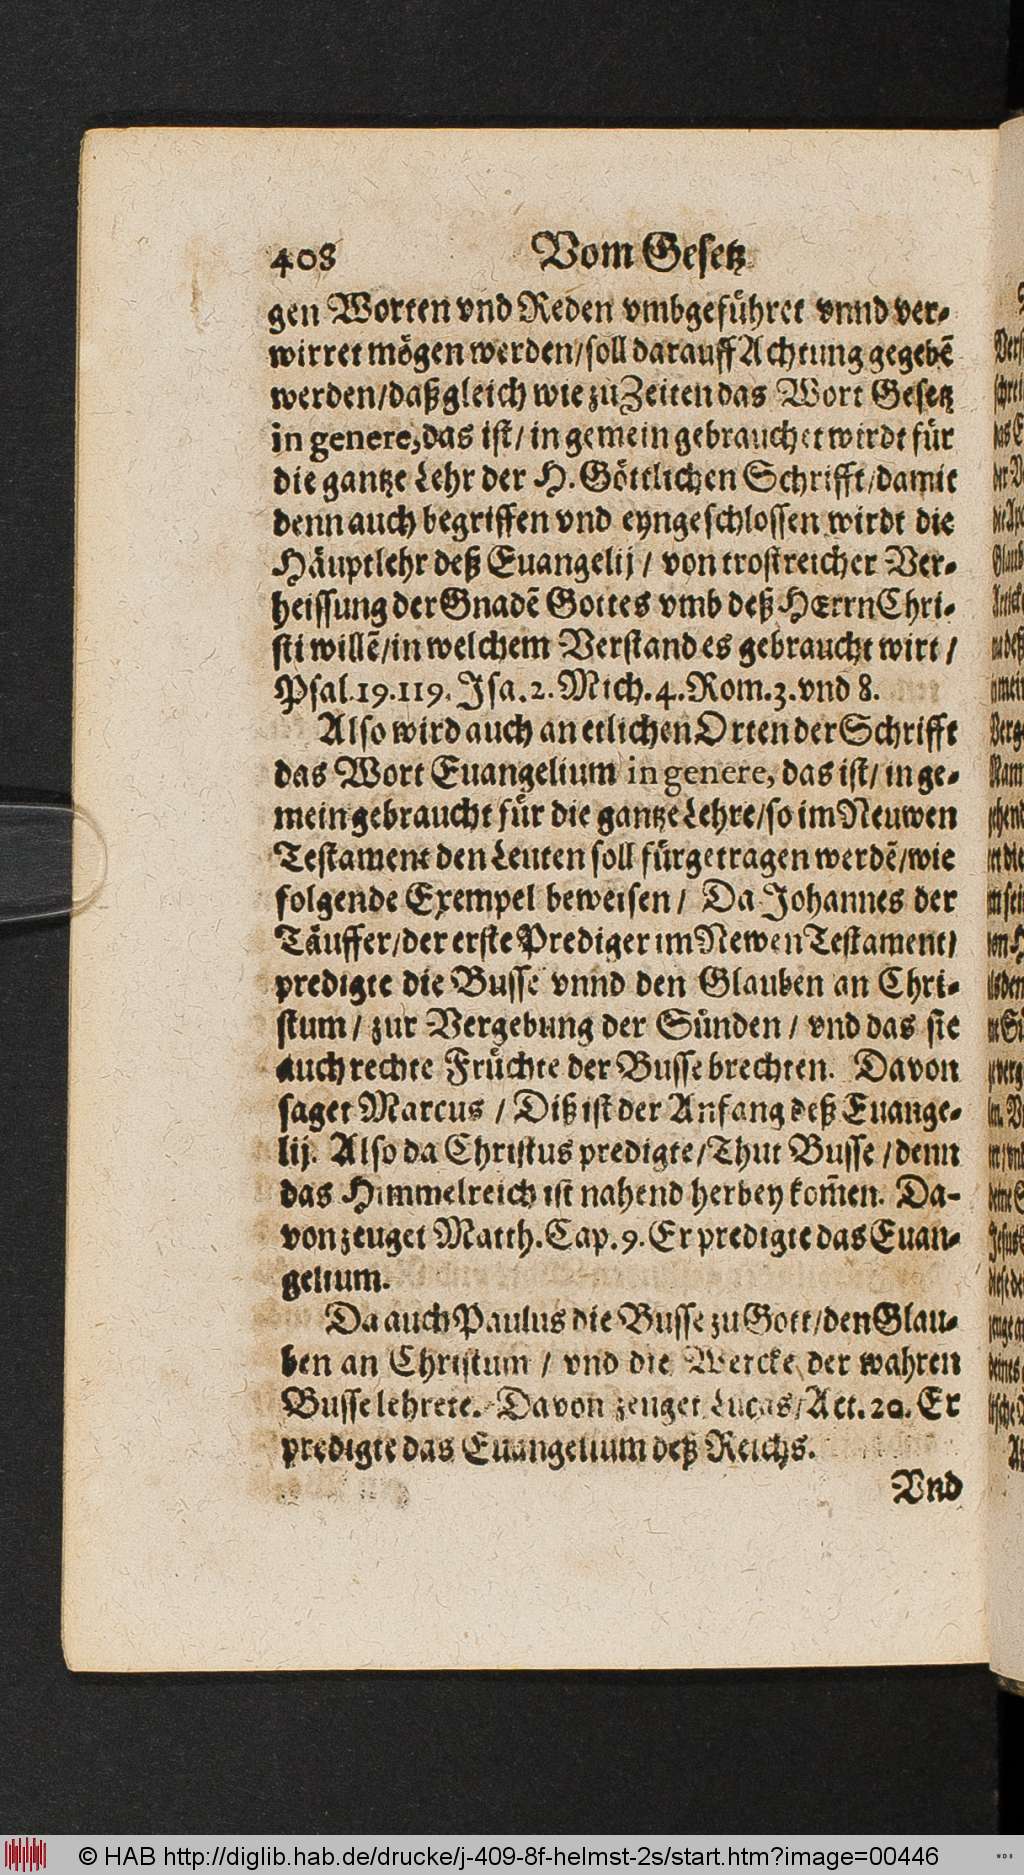 408 Vom Gesetz
gen Worten vnd Reden vmbgeführet vnnd ver-
wirret mögen werden/soll darauff Achtung gegebẽ
werden/daß gleich wie zu Zeiten das Wort Gesetz
in genere, das ist/ in gemein gebrauchet wirdt für
die gantze Lehr der H. Göttlichen Schrifft/damit
denn auch begriffen vnd eyngeschlossen wirdt die
Häuptlehr deß Euangelij / von trostreicher Ver-
heissung der Gnadẽ Gottes vmb deß HErrn Chri-
sti willẽ/in welchem Verstand es gebraucht wirt /
Psal.19.119. Isa.2. Mich.4. Rom.3. vnd 8.
Also wird auch an etlichen Orten der Schrifft
das Wort Euangelium in genere, das ist/ in ge-
mein gebraucht für die gantze Lehre/so im Neuwen
Testament den Leuten soll fürgetragen werdẽ/wie
folgende Exempel beweisen / Da Johannes der
Täuffer/der erste Prediger im Newen Testament/
predigte die Busse vnnd den Glauben an Chri-
stum / zur Vergebung der Sünden / vnd das sie
auch rechte Früchte der Busse brechten. Davon
saget Marcus / Diß ist der Anfang deß Euange-
lij. Also da Christus predigte/Thut Busse /denn
das Himmelreich ist nahend herbey kom̃en. Da-
von zeuget Matth. Cap. 9. Er predigte das Euan-
gelium.
Da auch Paulus die Busse zu Gott/den Glau-
ben an Christum / vnd die Wercke der wahren
Busse lehrete. Davon zeuget Lucas/Act. 20. Er
predigte das Euangelium deß Reichs.
Vnd
© HAB http://diglib.hab.de/drucke/j-409-8f-helmst-2s/start.htm?image=00446